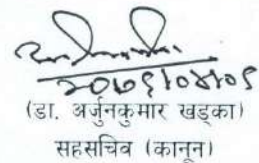 २०७९।०४।०९
(डा. अर्जुनकुमार खड्का)
सहसचिव (कानून)